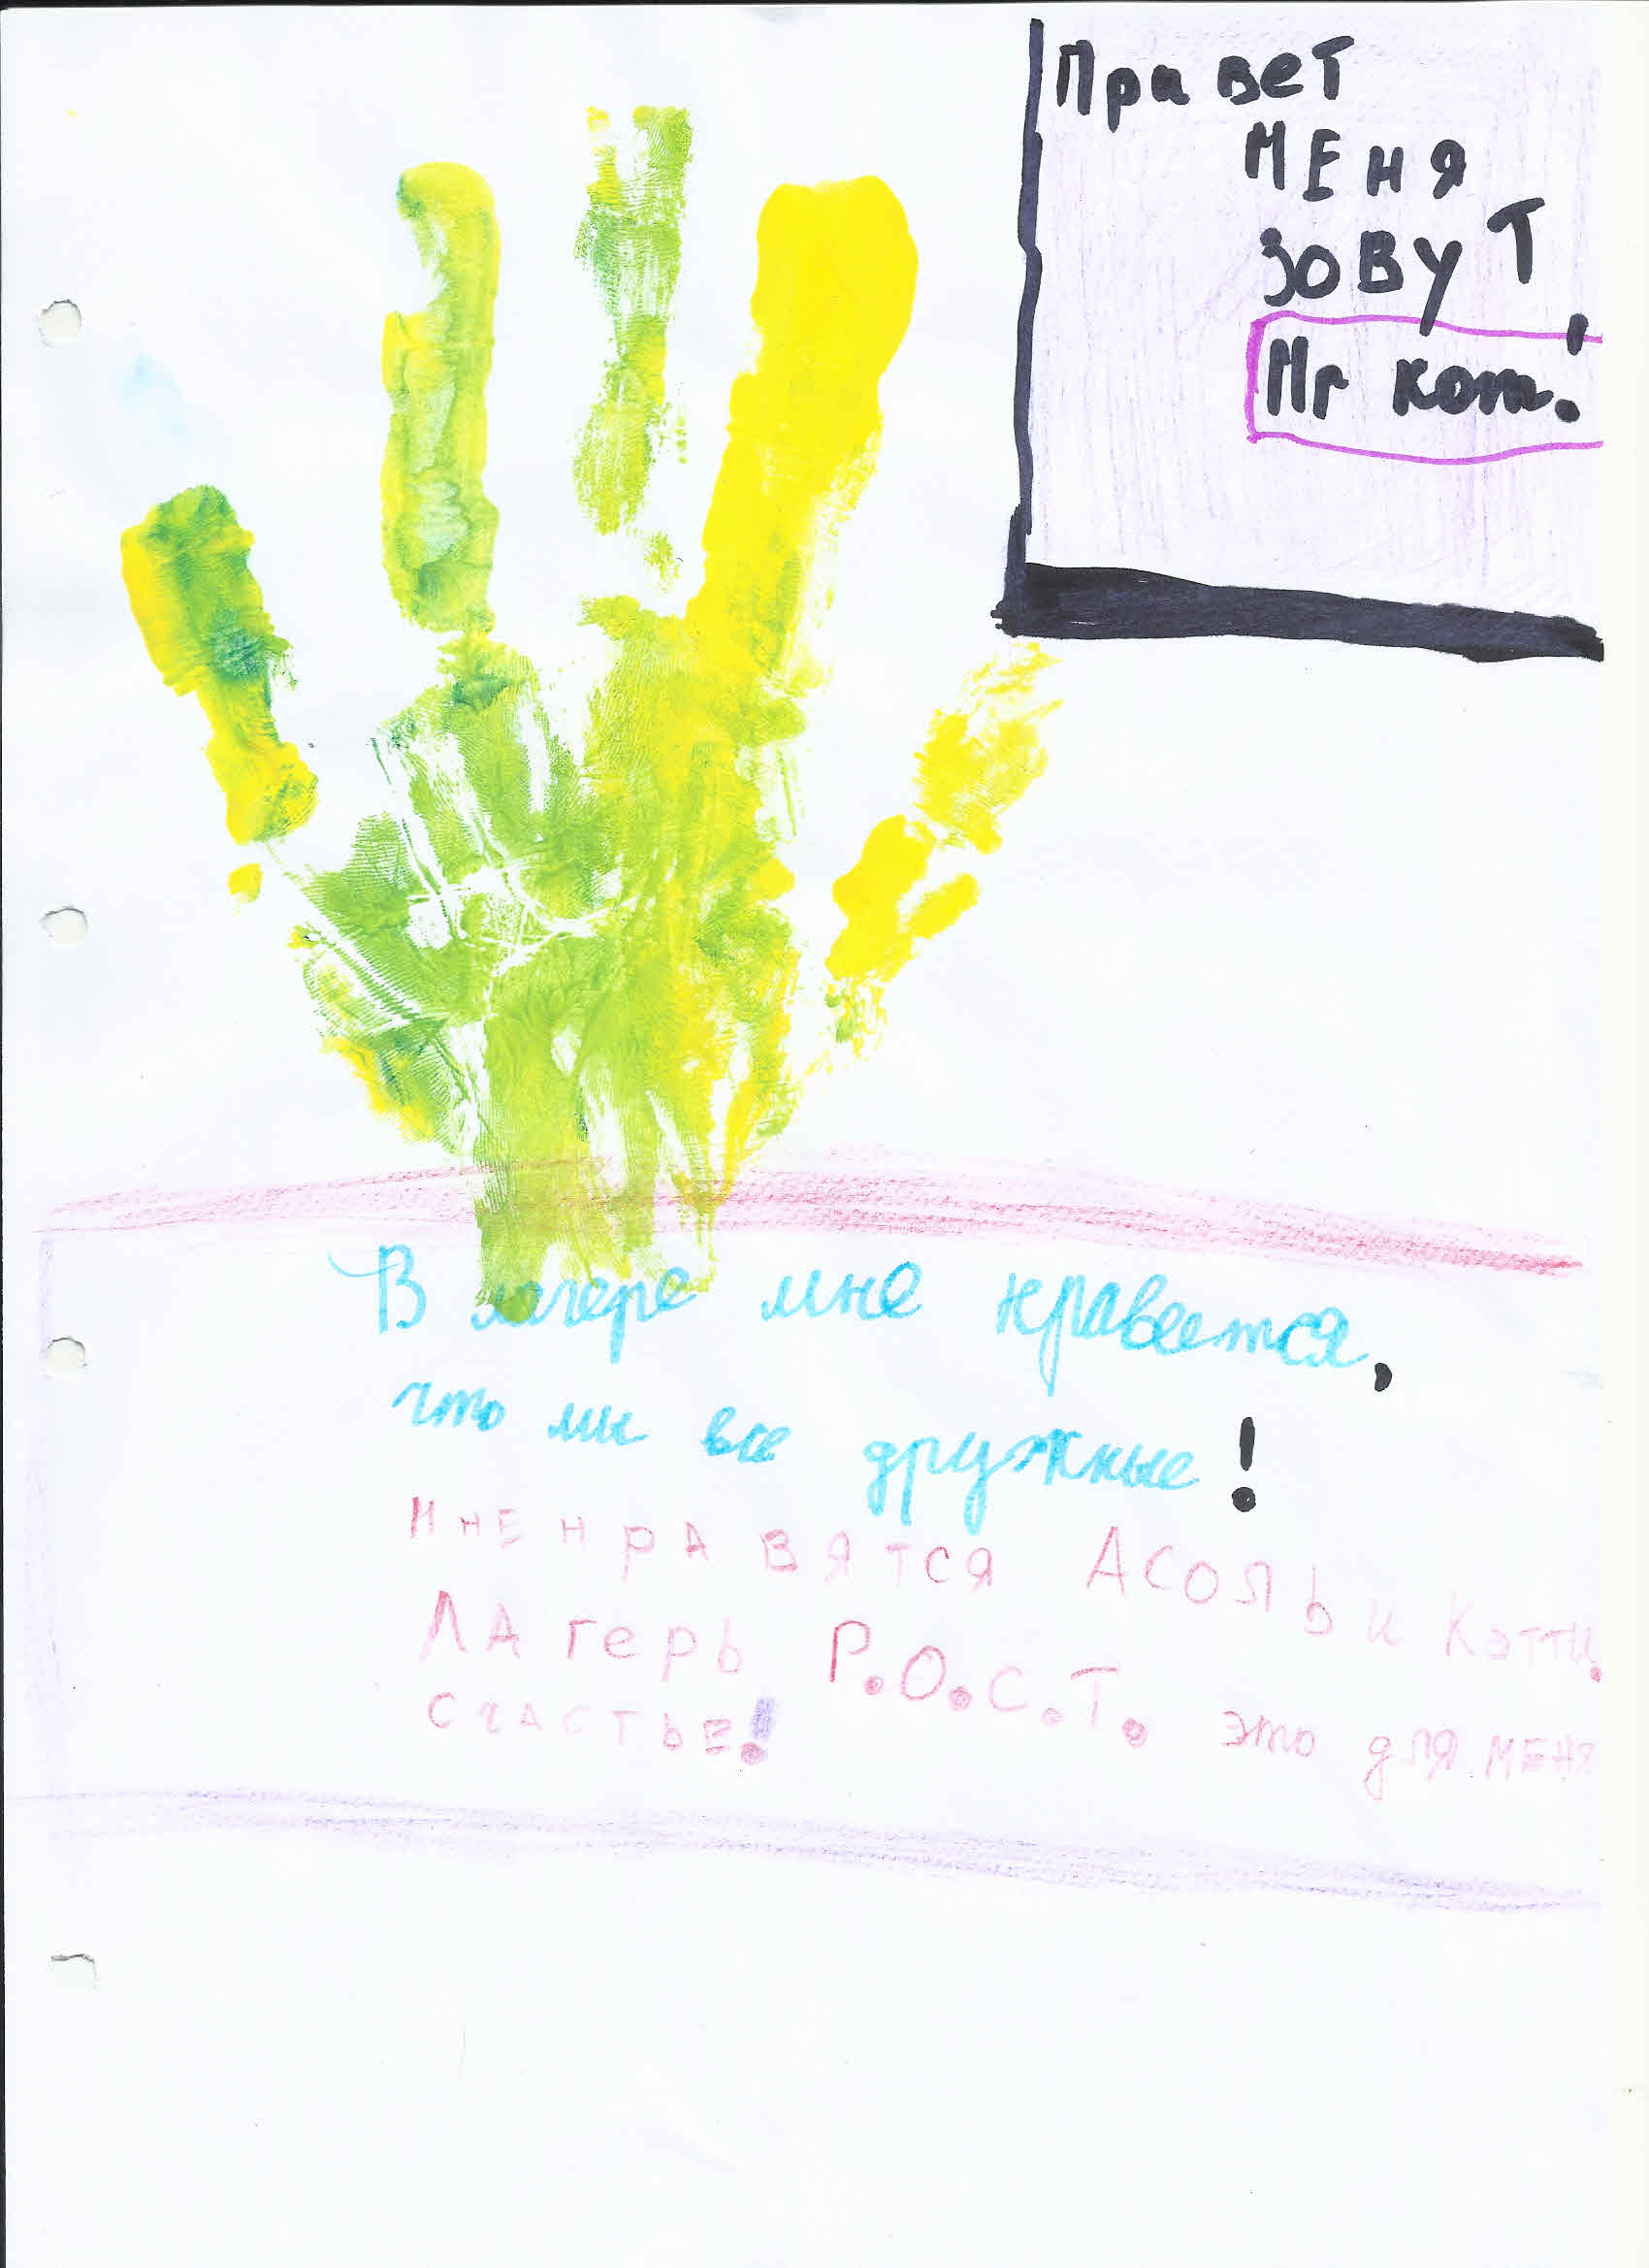 Привет
МЕНЯ
ЗОВУТ
Mr кот!
В лагере мне нравеется,
что мы все дружные!
МНЕ НРАВЯТСЯ Асоль и Кэтти.
ЛАгерь Р.О.С.Т. это для МЕНЯ
СЧАСТЬЕ!